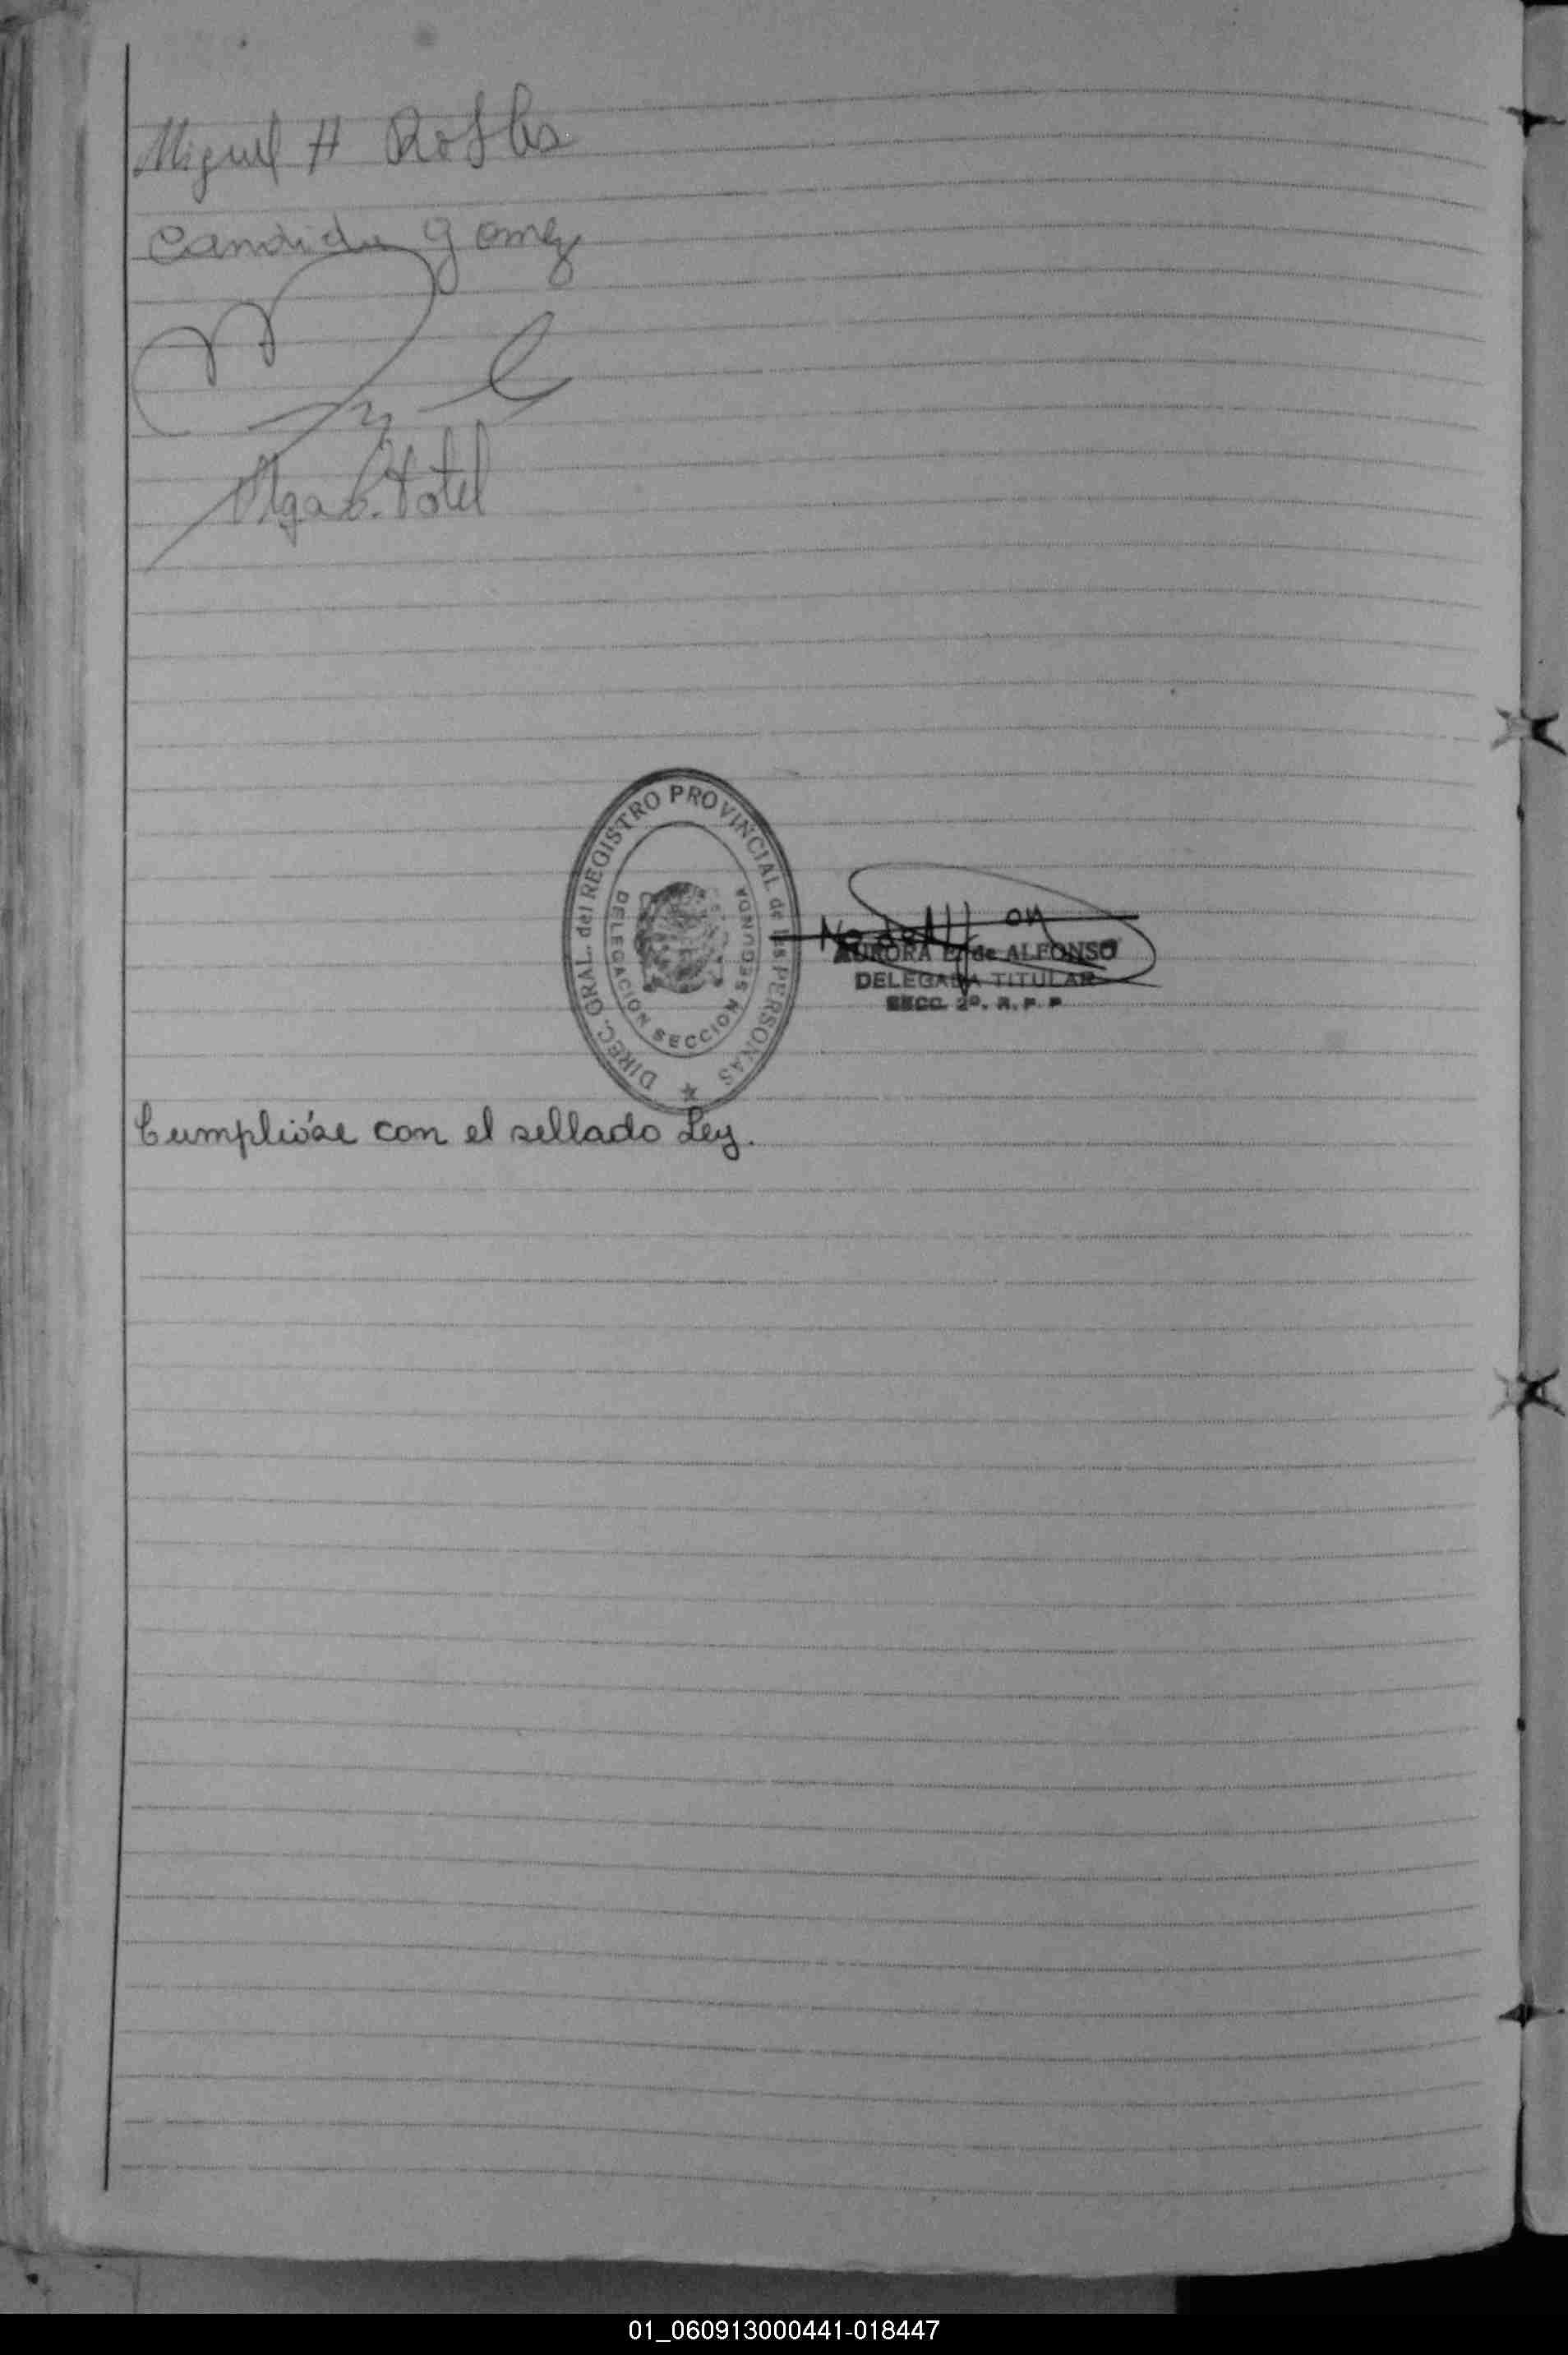 Miguel H Robles
Candida gomez
Olga b. Votel
DIREC. GRAL. del REGISTRO PROVINCIAL de las PERSONAS
DELEGACION SECCION SEGUNDA
AURORA de ALFONSO
DELEGADA TITULAR
SECC. 2º. R. P. P
Cumplióse con el sellado Ley.
01_060913000441-018447